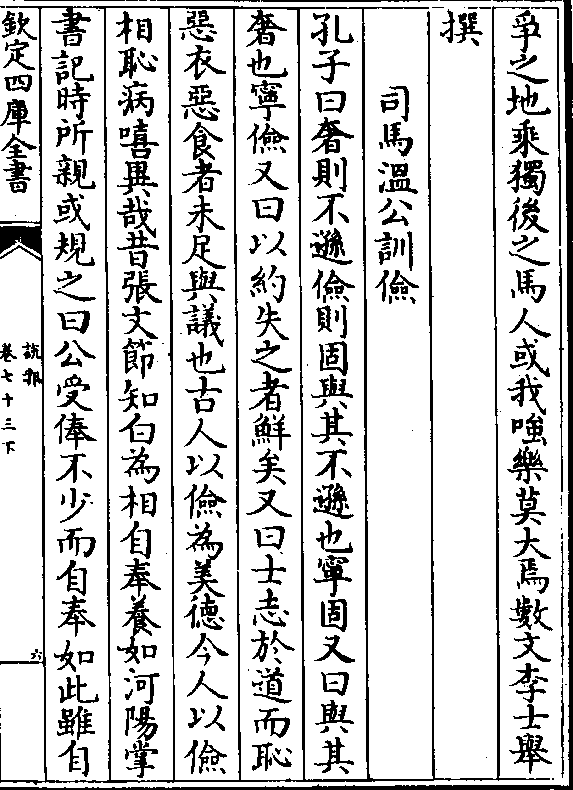 爭之地乘獨後之馬人或我嗤樂莫大焉數文李士舉
撰
司馬溫公訓儉
孔子曰奢則不遜儉則固與其不遜也寧固又曰與其
奢也寧儉又曰以約失之者鮮矣又曰士志於道而恥
惡衣惡食者未足與議也古人以儉為美德今人以儉
相恥病嘻異哉昔張文節知白為相自奉養如河陽掌
書記時所親或規之曰公受俸不少而自奉如此雖自
欽定四庫全書
說郛
卷七十三下
六